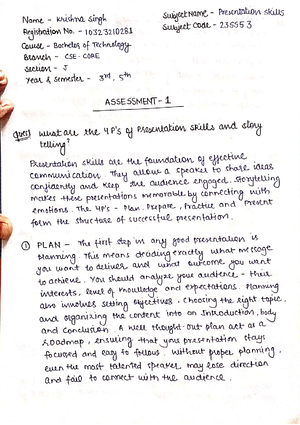 Name - Krishna Singh
Subject Name - Presentation skills
Registration No. - 10323210281
Subject Code - 23SS53
Course - Bachelor of Technology
Branch - CSE-CORE
Section - J
Year & Semester - 3rd, 5th
ASSESSMENT-1
Ques1 What are the 4P's of Presentation skills and story
telling?
Presentation skills are the foundation of effective
communication. They allow a speaker to share ideas
confidently and keep the audience engaged. Storytelling
makes these presentations memorable by connecting with
emotions. The 4P's - Plan, Prepare, Practice and Present
form the structure of successful presentation.
① PLAN - The first step in any good presentation is
planning. This means deciding exactly what message
you want to deliver and what outcome you want
to achieve. You should analyse your audience - their
interests, level of knowledge and expectations. Planning
also involves setting objectives, choosing the right topic,
and organizing the content into an Introduction, body
and Conclusion. A well thought-out plan act as a
roadmap, ensuring that your presentation stays
focused and easy to follow. Without proper planning,
even the most talented speaker may lose direction
and fail to connect with the audience.